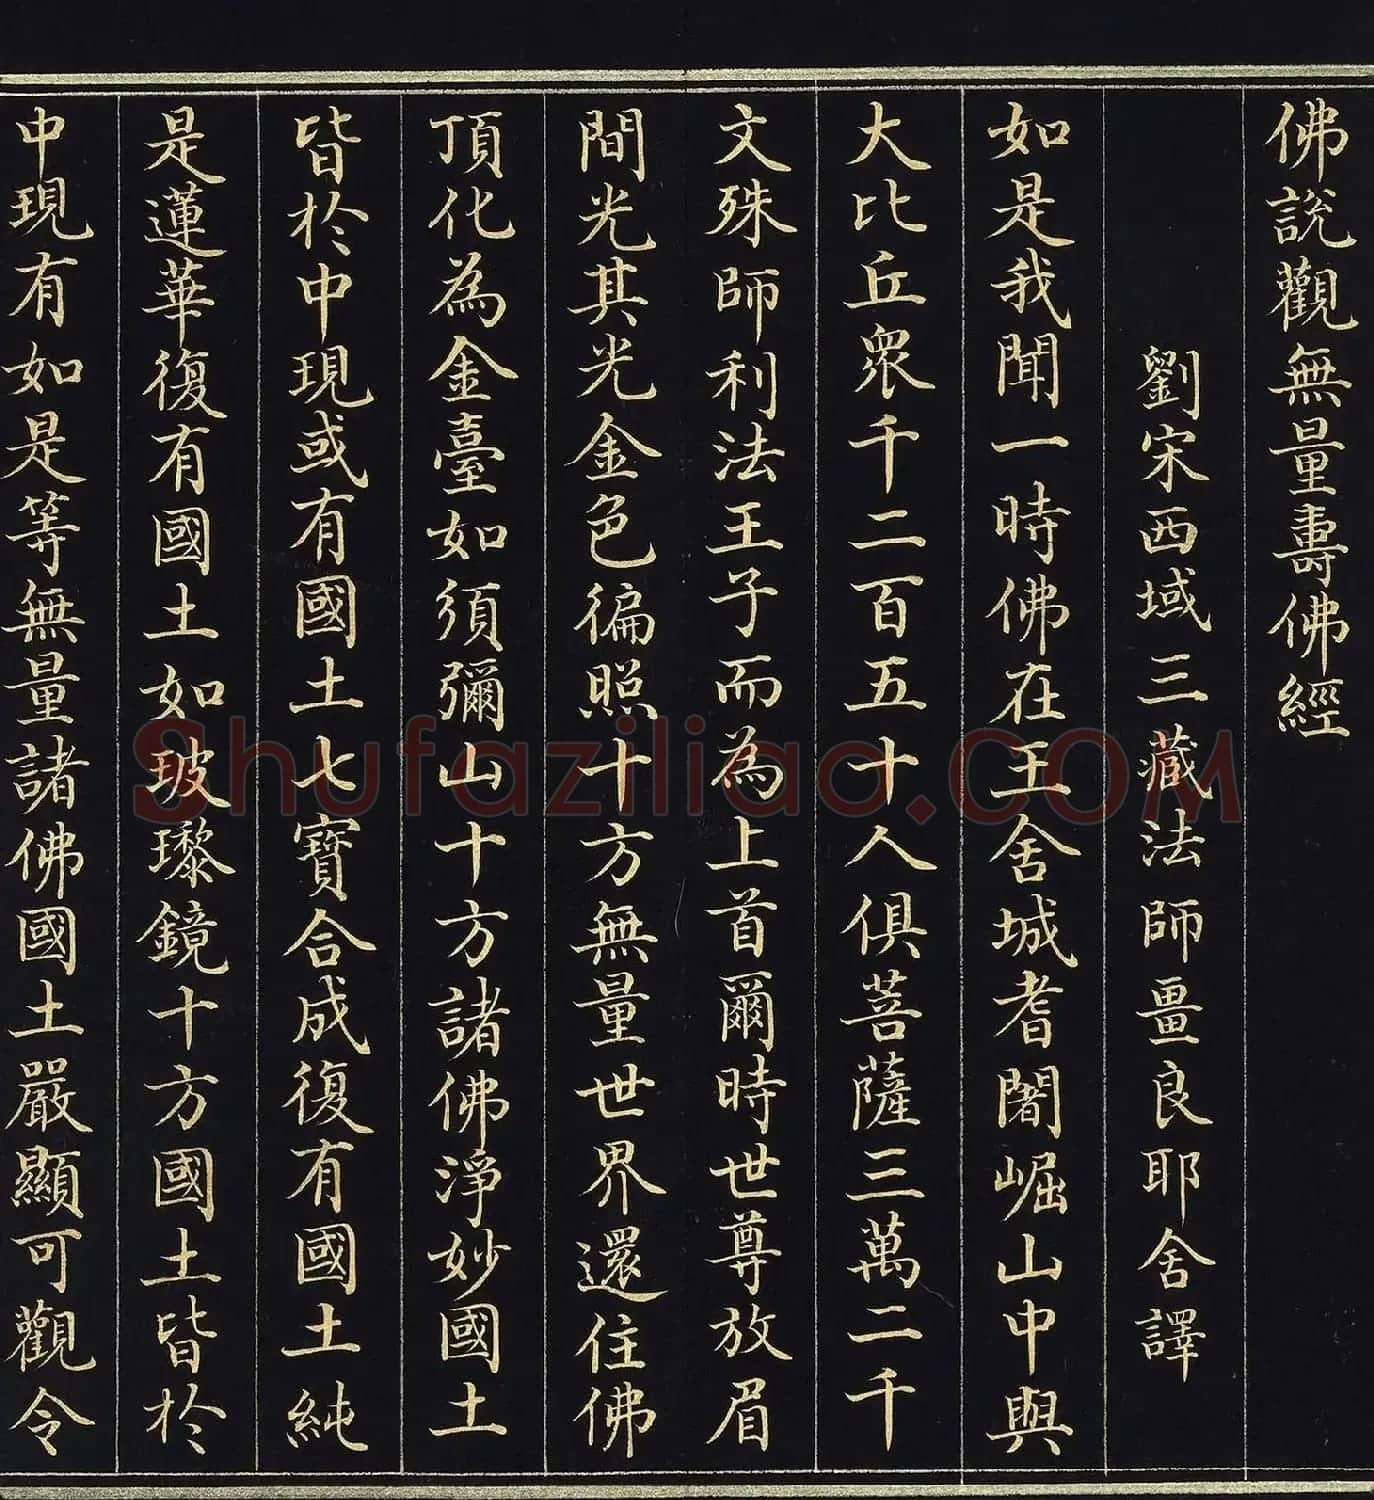 佛說觀無量壽佛經
劉宋西域三藏法師畺良耶舍譯
如是我聞一時佛在王舍城耆闍崛山中與
大比丘眾千二百五十人俱菩薩三萬二千
文殊師利法王子而為上首爾時世尊放眉
間光其光金色徧照十方無量世界還住佛
頂化為金臺如須彌山十方諸佛淨妙國土
皆於中現或有國土七寶合成復有國土純
是蓮華復有國土如玻瓈鏡十方國土皆於
中現有如是等無量諸佛國土嚴顯可觀令
Shufaziliao.com